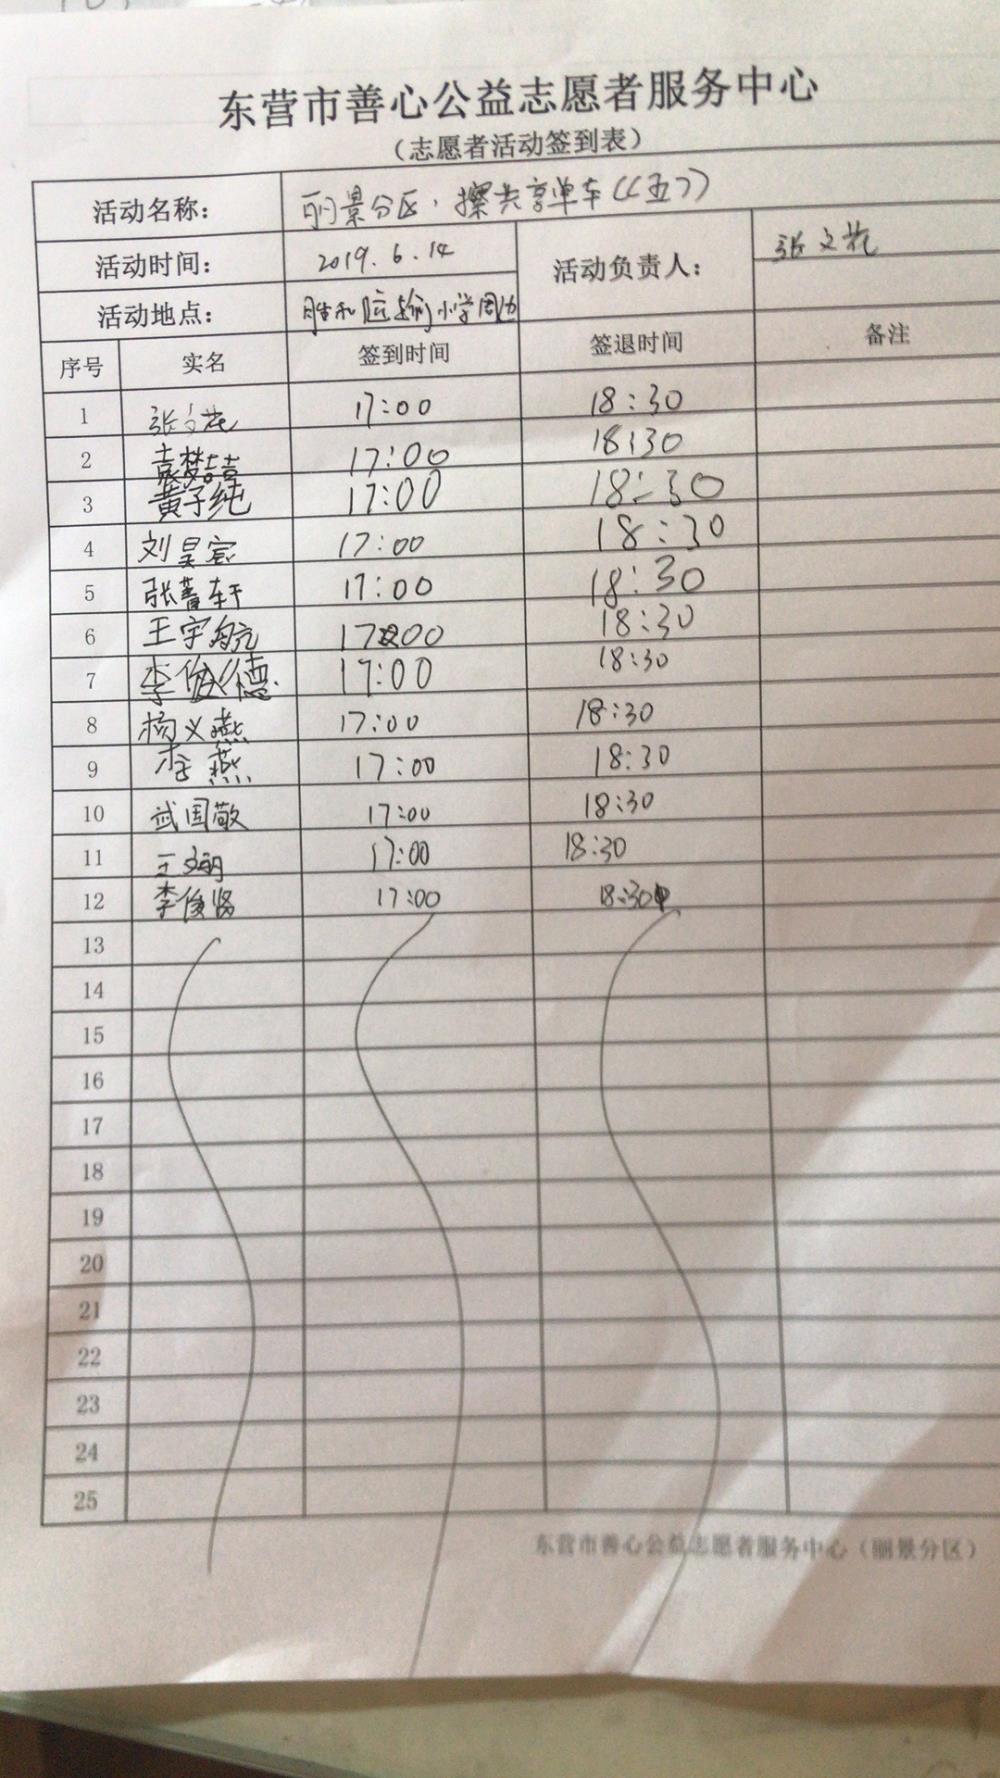 东营市善心公益志愿者服务中心
（志愿者活动签到表）
活动名称： 丽景分区，擦共享单车（（五））
活动时间： 2019.6.14 活动负责人： 张文花
活动地点： 胜利运输小学周边
序号 实名 签到时间 签退时间 备注
1 张文花 17:00 18:30
2 袁梦喜 17:00 18:30
3 黄子纯 17:00 18:30
4 刘昊宸 17:00 18:30
5 张菁轩 17:00 18:30
6 王宇航 17:00 18:30
7 李俊德 17:00 18:30
8 杨义燕 17:00 18:30
9 李燕 17:00 18:30
10 武国敬 17:00 18:30
11 王文丽 17:00 18:30
12 李俊贤 17:00 18:30
13
14
15
16
17
18
19
20
21
22
23
24
25
东营市善心公益志愿者服务中心（丽景分区）